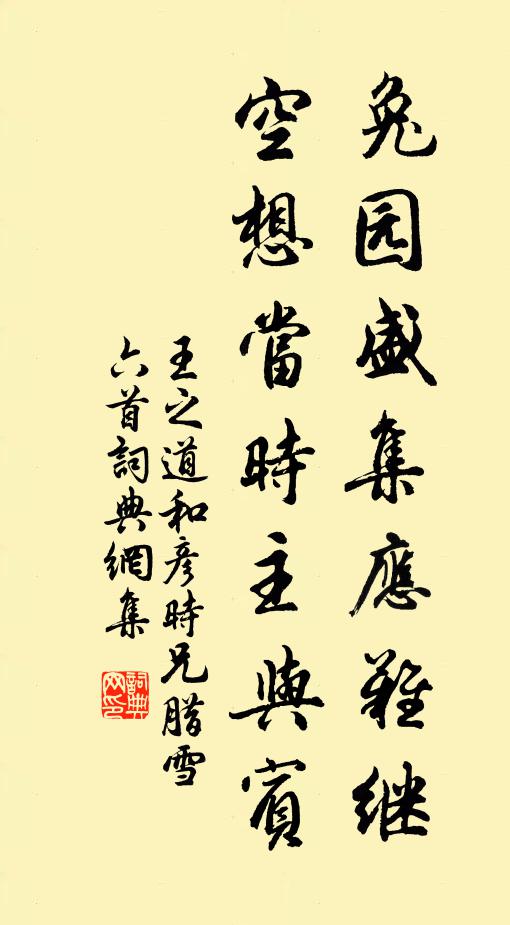 兔园盛集應難继
空想當時主與賓
王之道和彦時兄腊雪
六首詞典網集
詞典
网印